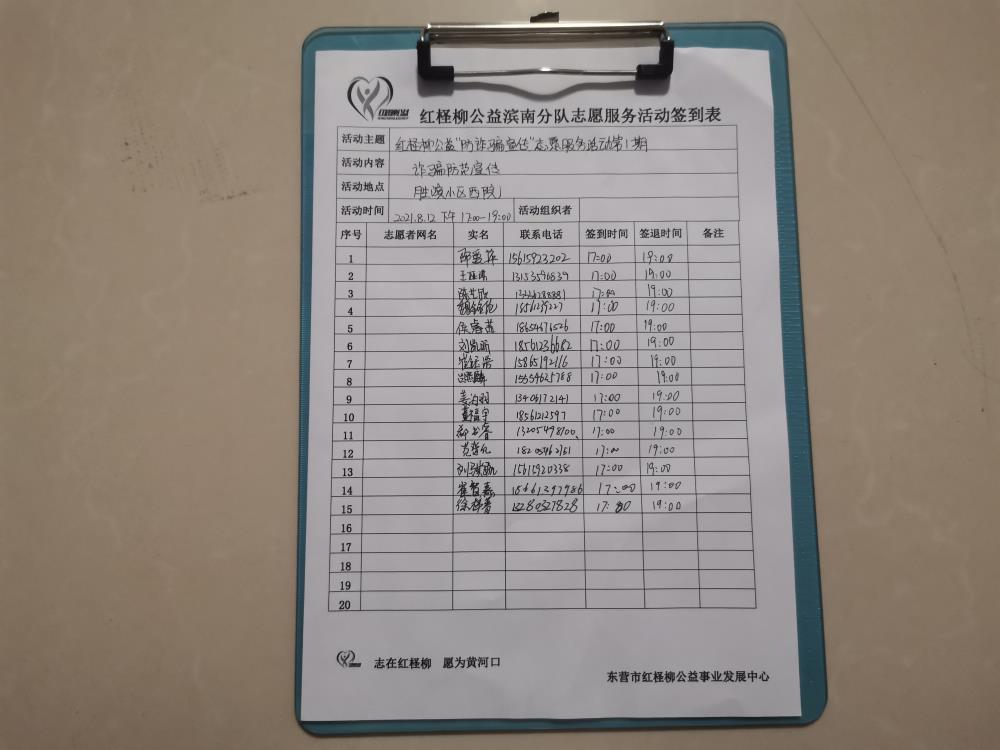 红柽柳公益滨南分队志愿服务活动签到表
活动主题 红柽柳公益"防诈骗宣传"志愿服务活动第1期
活动内容 诈骗防范宣传
活动地点 胜滨小区西院
活动时间 2021.8.12 下午 17:00-19:00 活动组织者
序号 志愿者网名 实名 联系电话 签到时间 签退时间 备注
1 15615923202 17:00 19:00
2 13153596639 17:00 19:00
3 17:00 19:00
4 17:00 19:00
5 侯睿茜 18654676526 17:00 19:00
6 18561236682 17:00 19:00
7 15865192116 17:00 19:00
8 15554625788 17:00 19:00
9 13406172141 17:00 19:00
10 18561212597 17:00 19:00
11 13205498100 17:00 19:00
12 17:00 19:00
13 15615920338 17:00 19:00
14 15661397986 17:00 19:00
15 17:00 19:00
16
17
18
19
20
志在红柽柳 愿为黄河口
东营市红柽柳公益事业发展中心